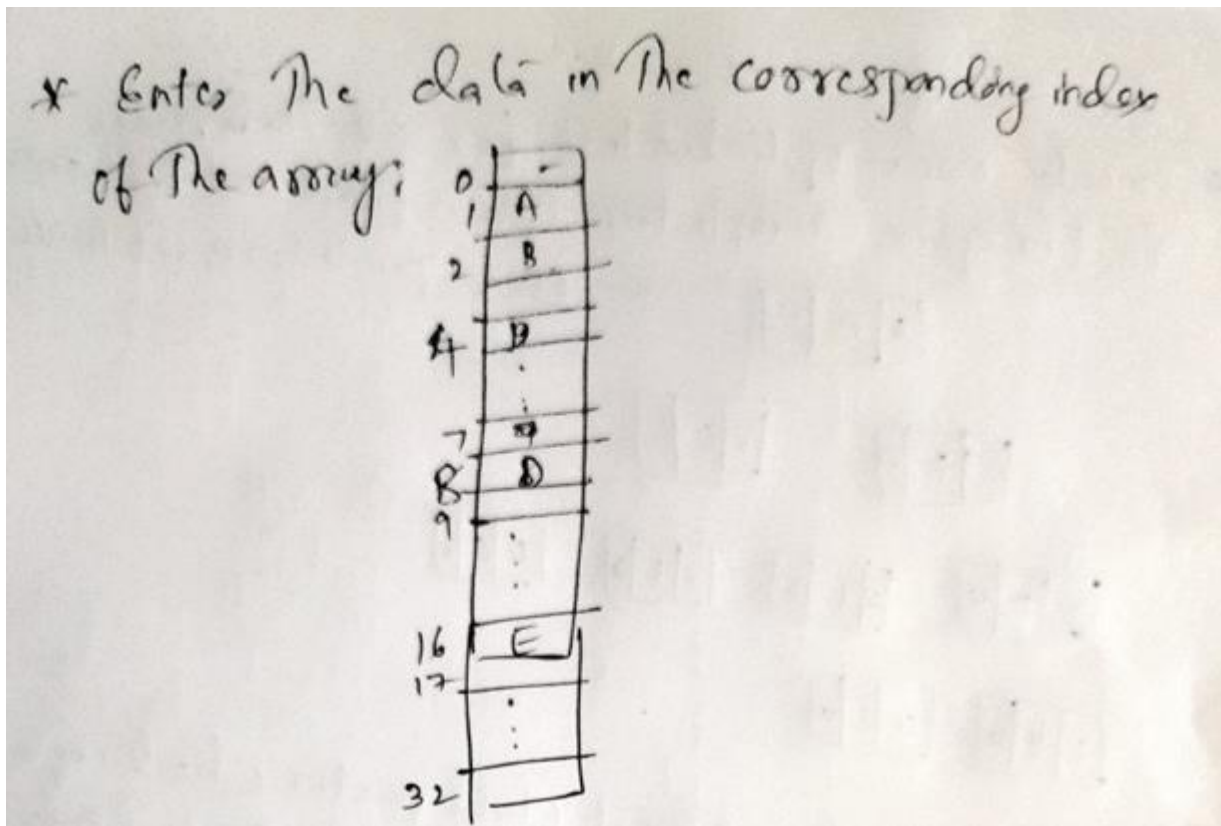 * Enter The data in The corresponding index
of The array:
0 -
1 A
2 B
4
7
8 D
9
16 E
17
32